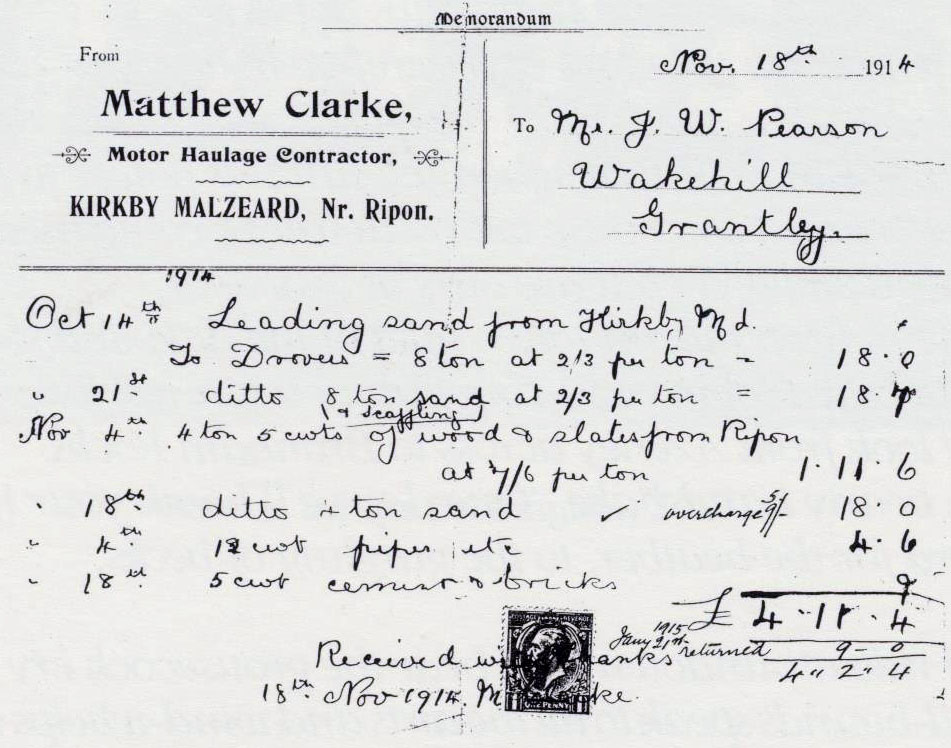 Memorandum
From
Matthew Clarke,
Motor Haulage Contractor,
KIRKBY MALZEARD, Nr. Ripon.
Nov. 18th 1914
To Mr. J. W. Pearson
Wakehill
Grantley.
1914
Oct 14th Leading sand from Kirkby Md.
To Drovers = 8 ton at 2/3 per ton = 18.0
" 21st ditto 8 ton sand at 2/3 per ton = 18.
& scaffling
Nov 4th 4 ton 5 cwts of wood & slates from Ripon
at 7/6 per ton 1.11.6
" 18th ditto 4 ton sand ✓ overcharge 9/- 18.0
" 4th 12 cwt pipes etc 4.6
" 18th 5 cwt cement & bricks 9
£ 4.11.4
1915
Jany 21st returned 9-0
4" 2" 4
Received with thanks
18th Nov 1914. M Clarke.
POSTAGE REVENUE
ONE PENNY